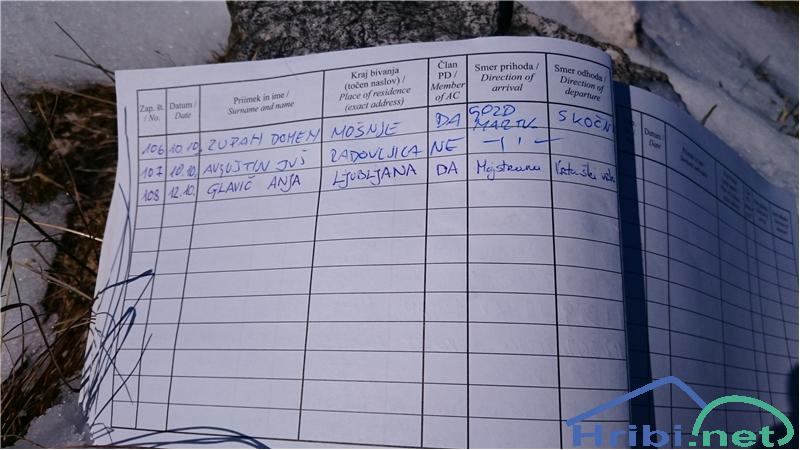 Zap. št. / No. Datum / Date Priimek in ime / Surname and name Kraj bivanja / (točen naslov) / Place of residence (exact address) Član PD / Member of AC Smer prihoda / Direction of arrival Smer odhoda / Direction of departure
106 10.10. ZUPAN DOMEN MOŠNJE DA GOZD MARTK SKOČN
107 10.10. AVGUŠTIN JUŠ RADOVLJICA NE -11-
108 12.10. GLAVIČ ANJA LJUBLJANA DA Mojstrana
Datum / Date
Hribi.net